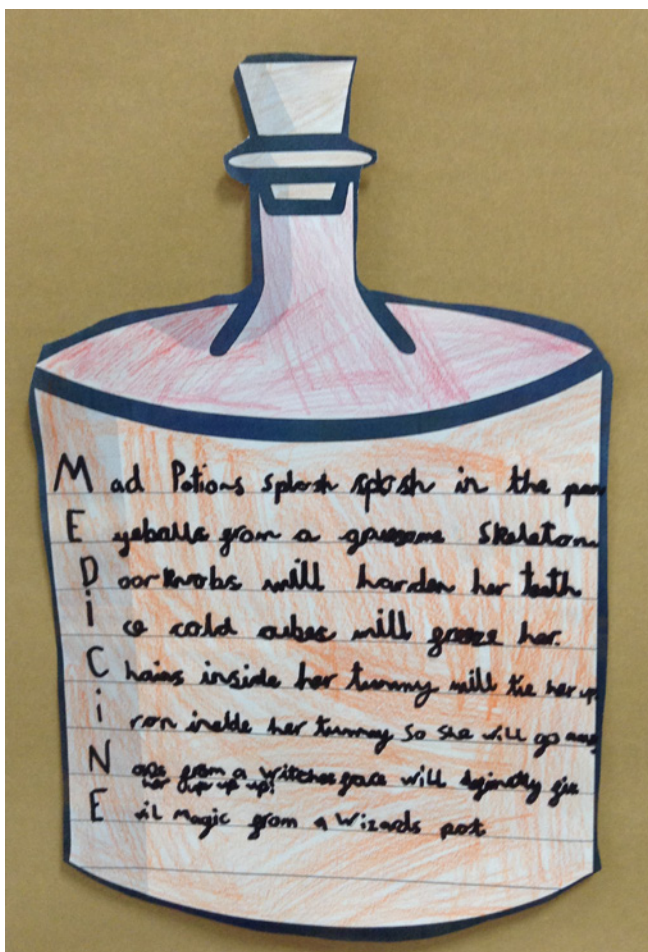 Mad Potions splosh splosh in the pan
Eyeballs from a gruesome Skeleton
Doorknobs will harden her teeth
ice cold cubes will freeze her.
Chains inside her tummy will tie her up
iron inside her tummey so she will go away
from a witches face will
her up up up!
Evil Magic from a Wizards pot